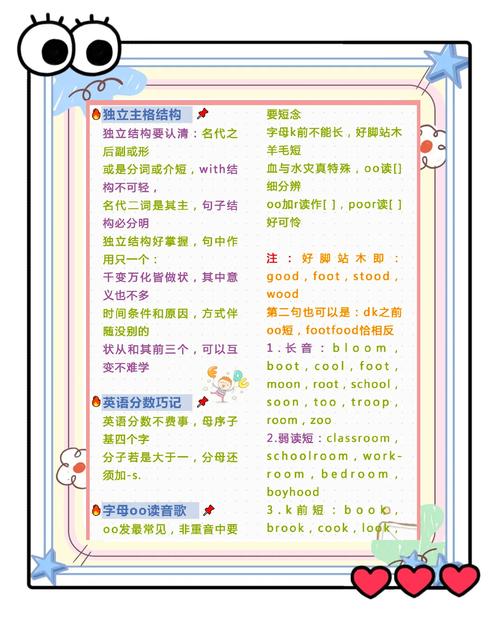 独立主格结构
独立结构要认清：名代之
后副或形
或是分词或介短，with结
构不可轻，
名代二词是其主，句子结
构必分明
独立结构好掌握，句中作
用只一个：
千变万化皆做状，其中意
义也不多
时间条件和原因，方式伴
随没别的
状从和其前三个，可以互
变不难学
英语分数巧记
英语分数不费事，母序子
基四个字
分子若是大于一，分母还
须加-s.
字母oo读音歌
oo发最常见，非重音中要
要短念
字母k前不能长，好脚站木
羊毛短
血与水灾真特殊，oo读[]
细分辨
oo加r读作[ ]，poor读[ ]
好可怜
注：好脚站木即：
good，foot，stood，
wood
第二句也可以是：dk之前
oo短，footfood恰相反
1.长音：bloom，
boot，cool，foot，
moon，root，school，
soon，too，troop，
room，zoo
2.弱读短：classroom，
schoolroom，work-
room，bedroom，
boyhood
3.k前短：book，
brook，cook，look，